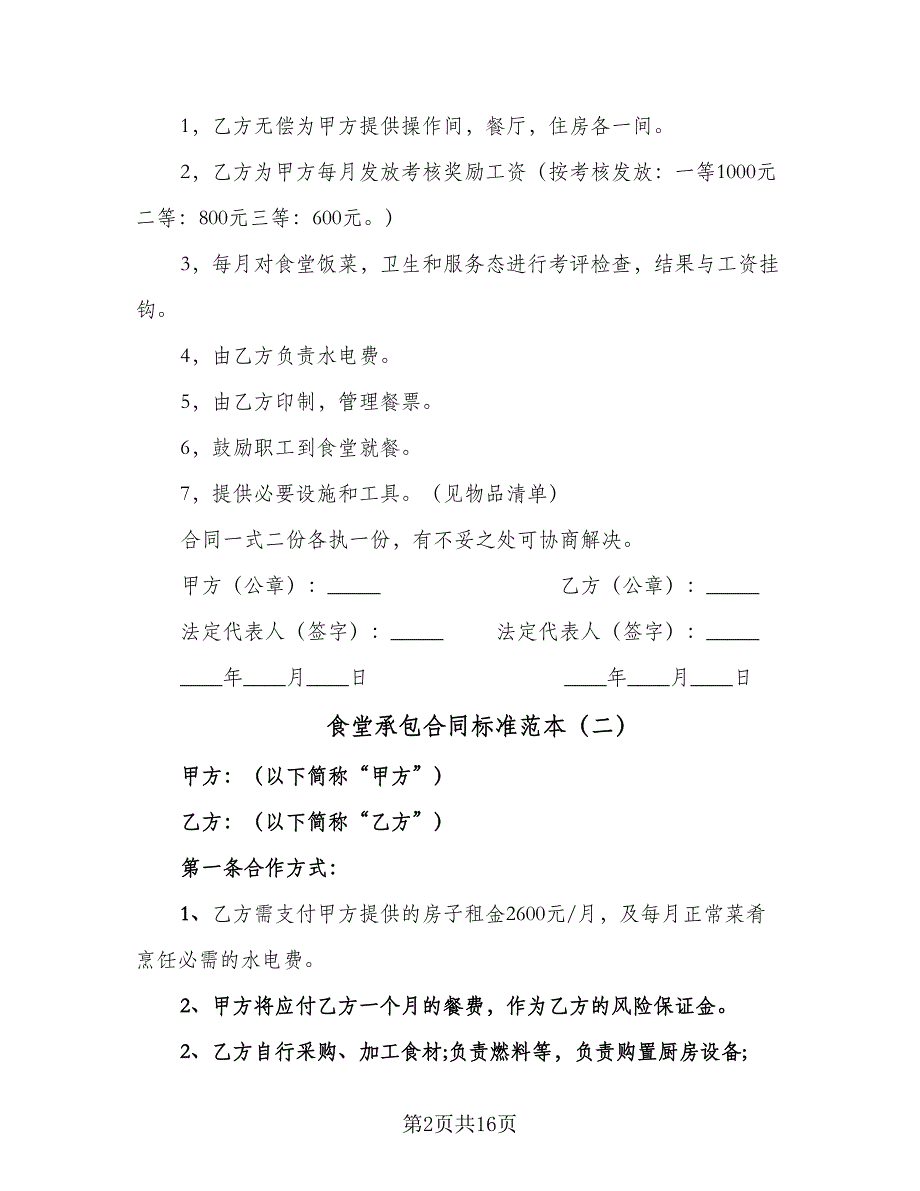 1，乙方无偿为甲方提供操作间，餐厅，住房各一间。
2，乙方为甲方每月发放考核奖励工资（按考核发放：一等1000元
二等：800元三等：600元。）
3，每月对食堂饭菜，卫生和服务态进行考评检查，结果与工资挂
钩。
4，由乙方负责水电费。
5，由乙方印制，管理餐票。
6，鼓励职工到食堂就餐。
7，提供必要设施和工具。（见物品清单）
合同一式二份各执一份，有不妥之处可协商解决。
甲方（公章）：_____ 乙方（公章）：_____
法定代表人（签字）：_____ 法定代表人（签字）：_____
____年____月____日 ____年____月____日
食堂承包合同标准范本（二）
甲方：（以下简称“甲方”）
乙方：（以下简称“乙方”）
第一条合作方式：
1、乙方需支付甲方提供的房子租金2600元/月，及每月正常菜肴
烹饪必需的水电费。
2、甲方将应付乙方一个月的餐费，作为乙方的风险保证金。
2、乙方自行采购、加工食材;负责燃料等，负责购置厨房设备;
第2页共16页